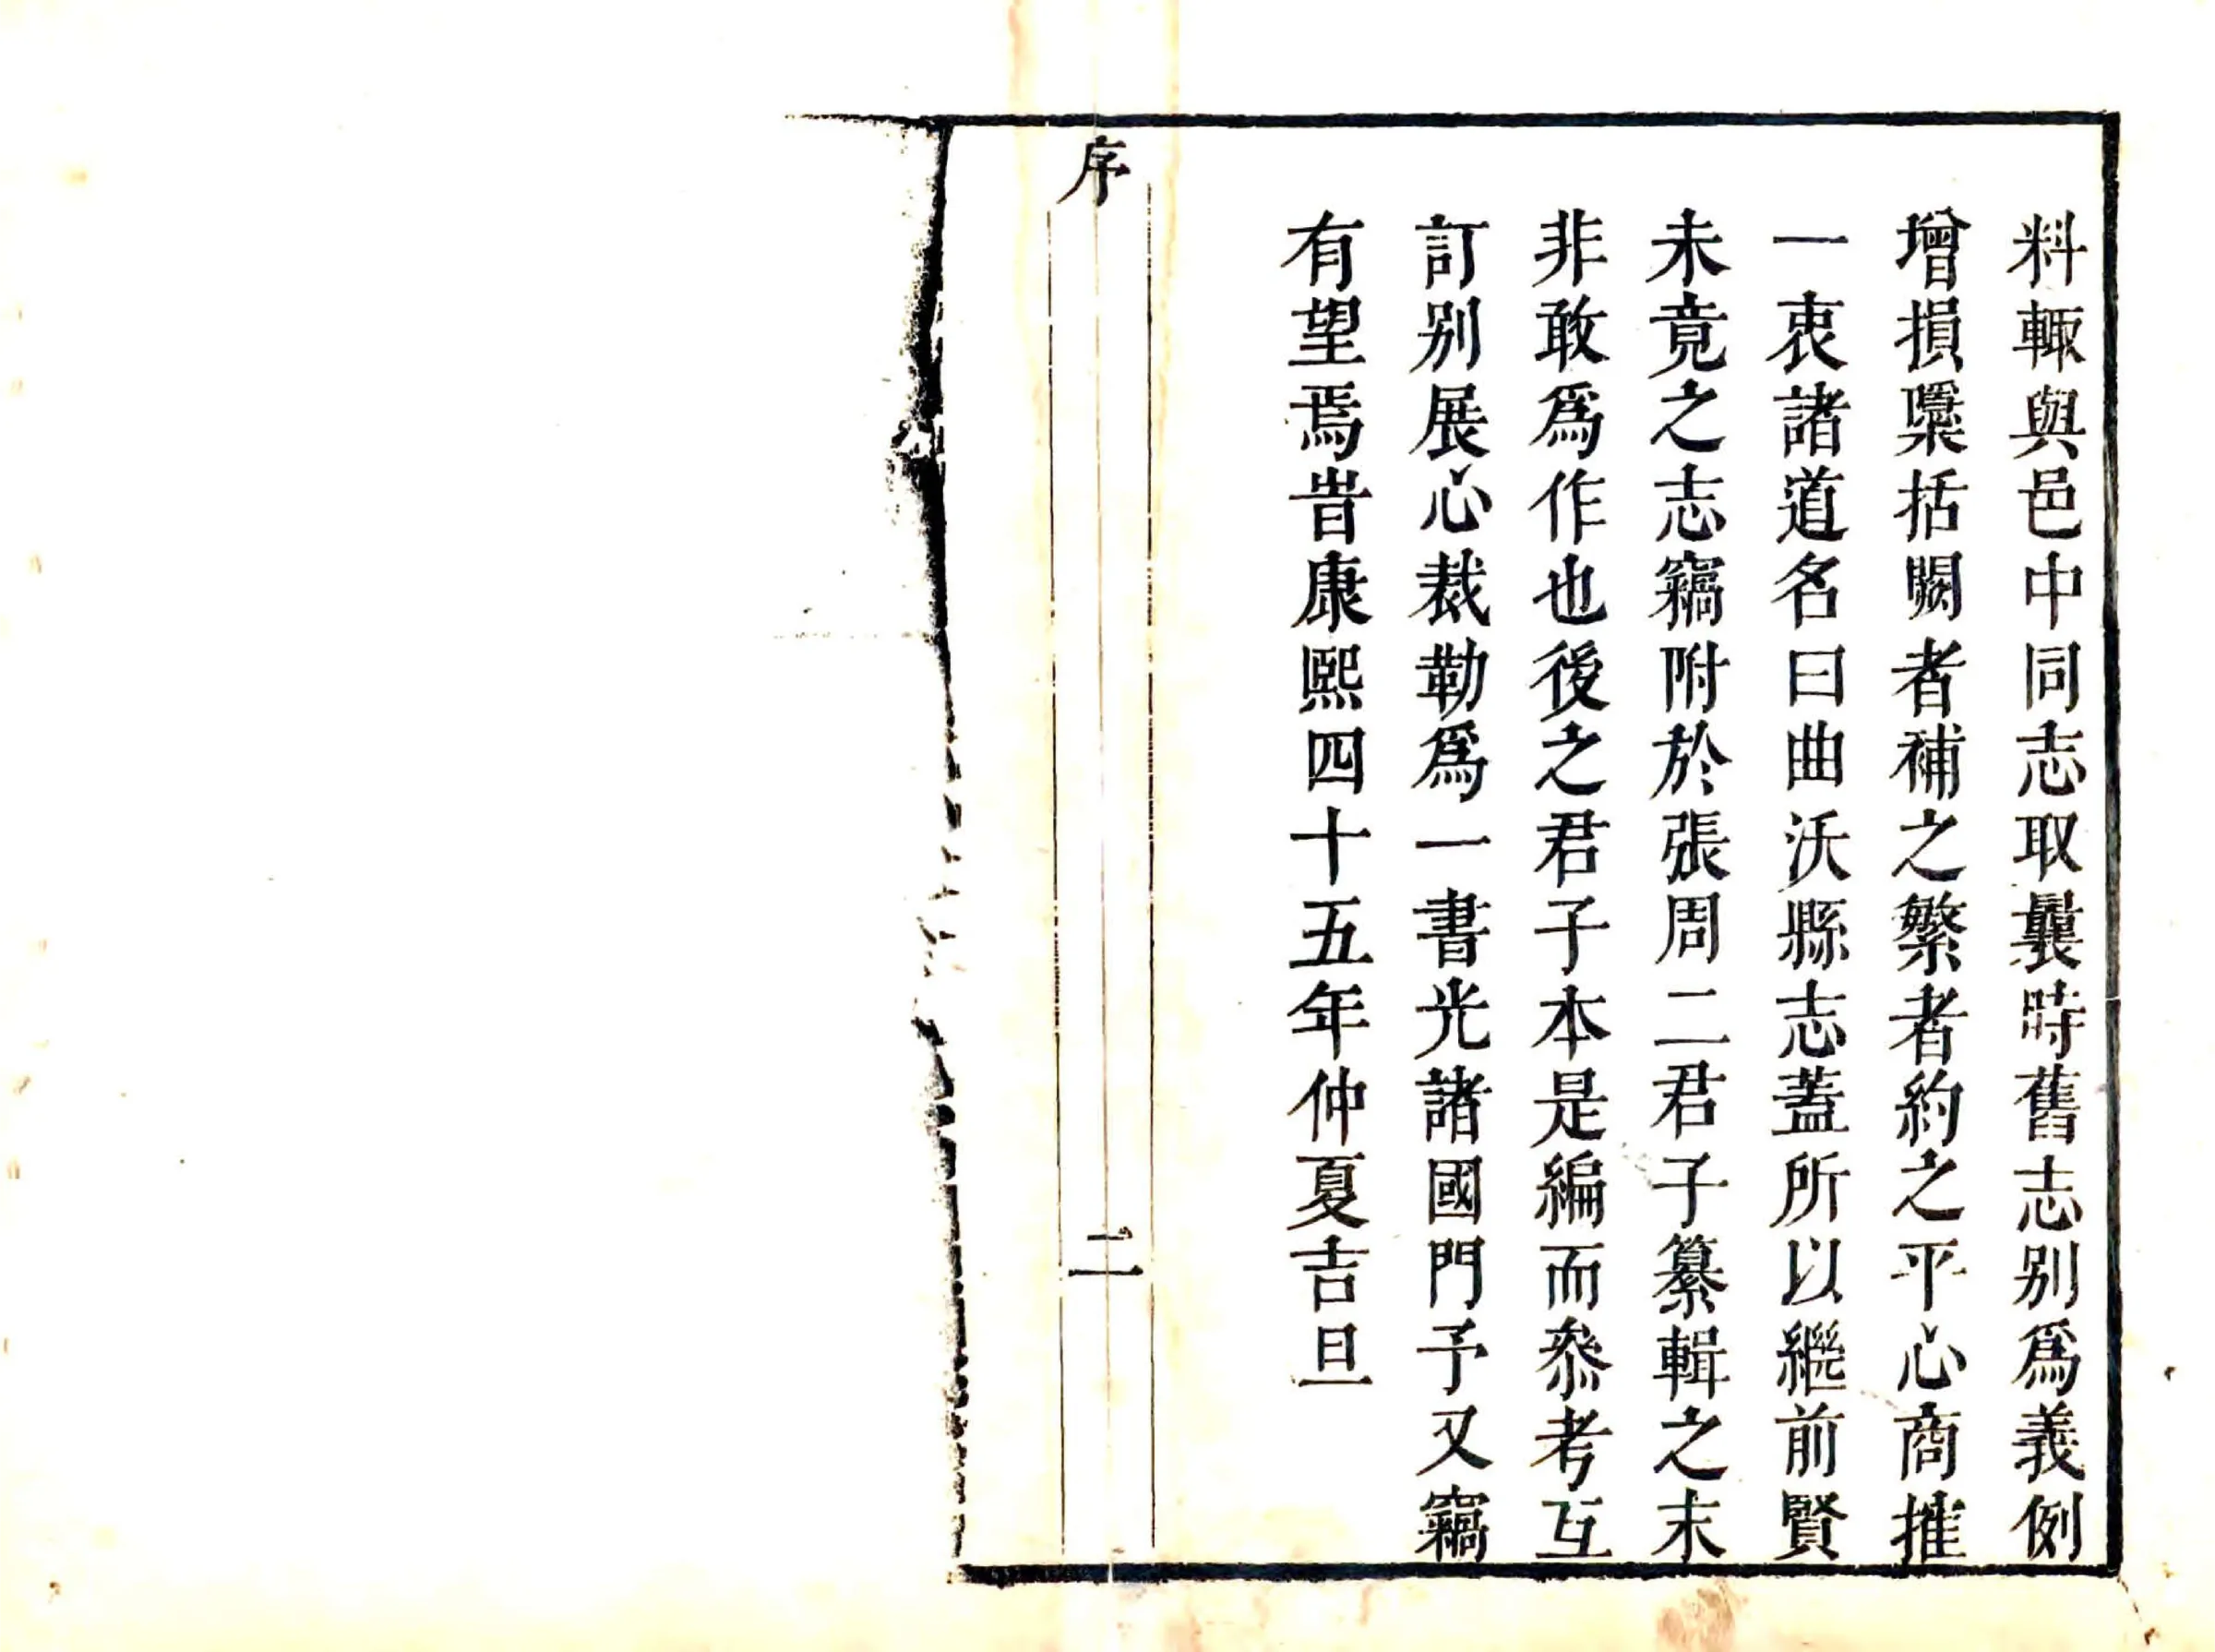 料輙與邑中同志取曩時舊志別爲義例
增損檃括闕者補之繁者約之平心商摧
一衷諸道名曰曲沃縣志蓋所以繼前賢
未竟之志竊附於張周二君子纂輯之末
非敢爲作也後之君子本是編而叅考互
訂別展心裁勒爲一書光諸國門予又竊
有望焉旹康熙四十五年仲夏吉旦
序
二